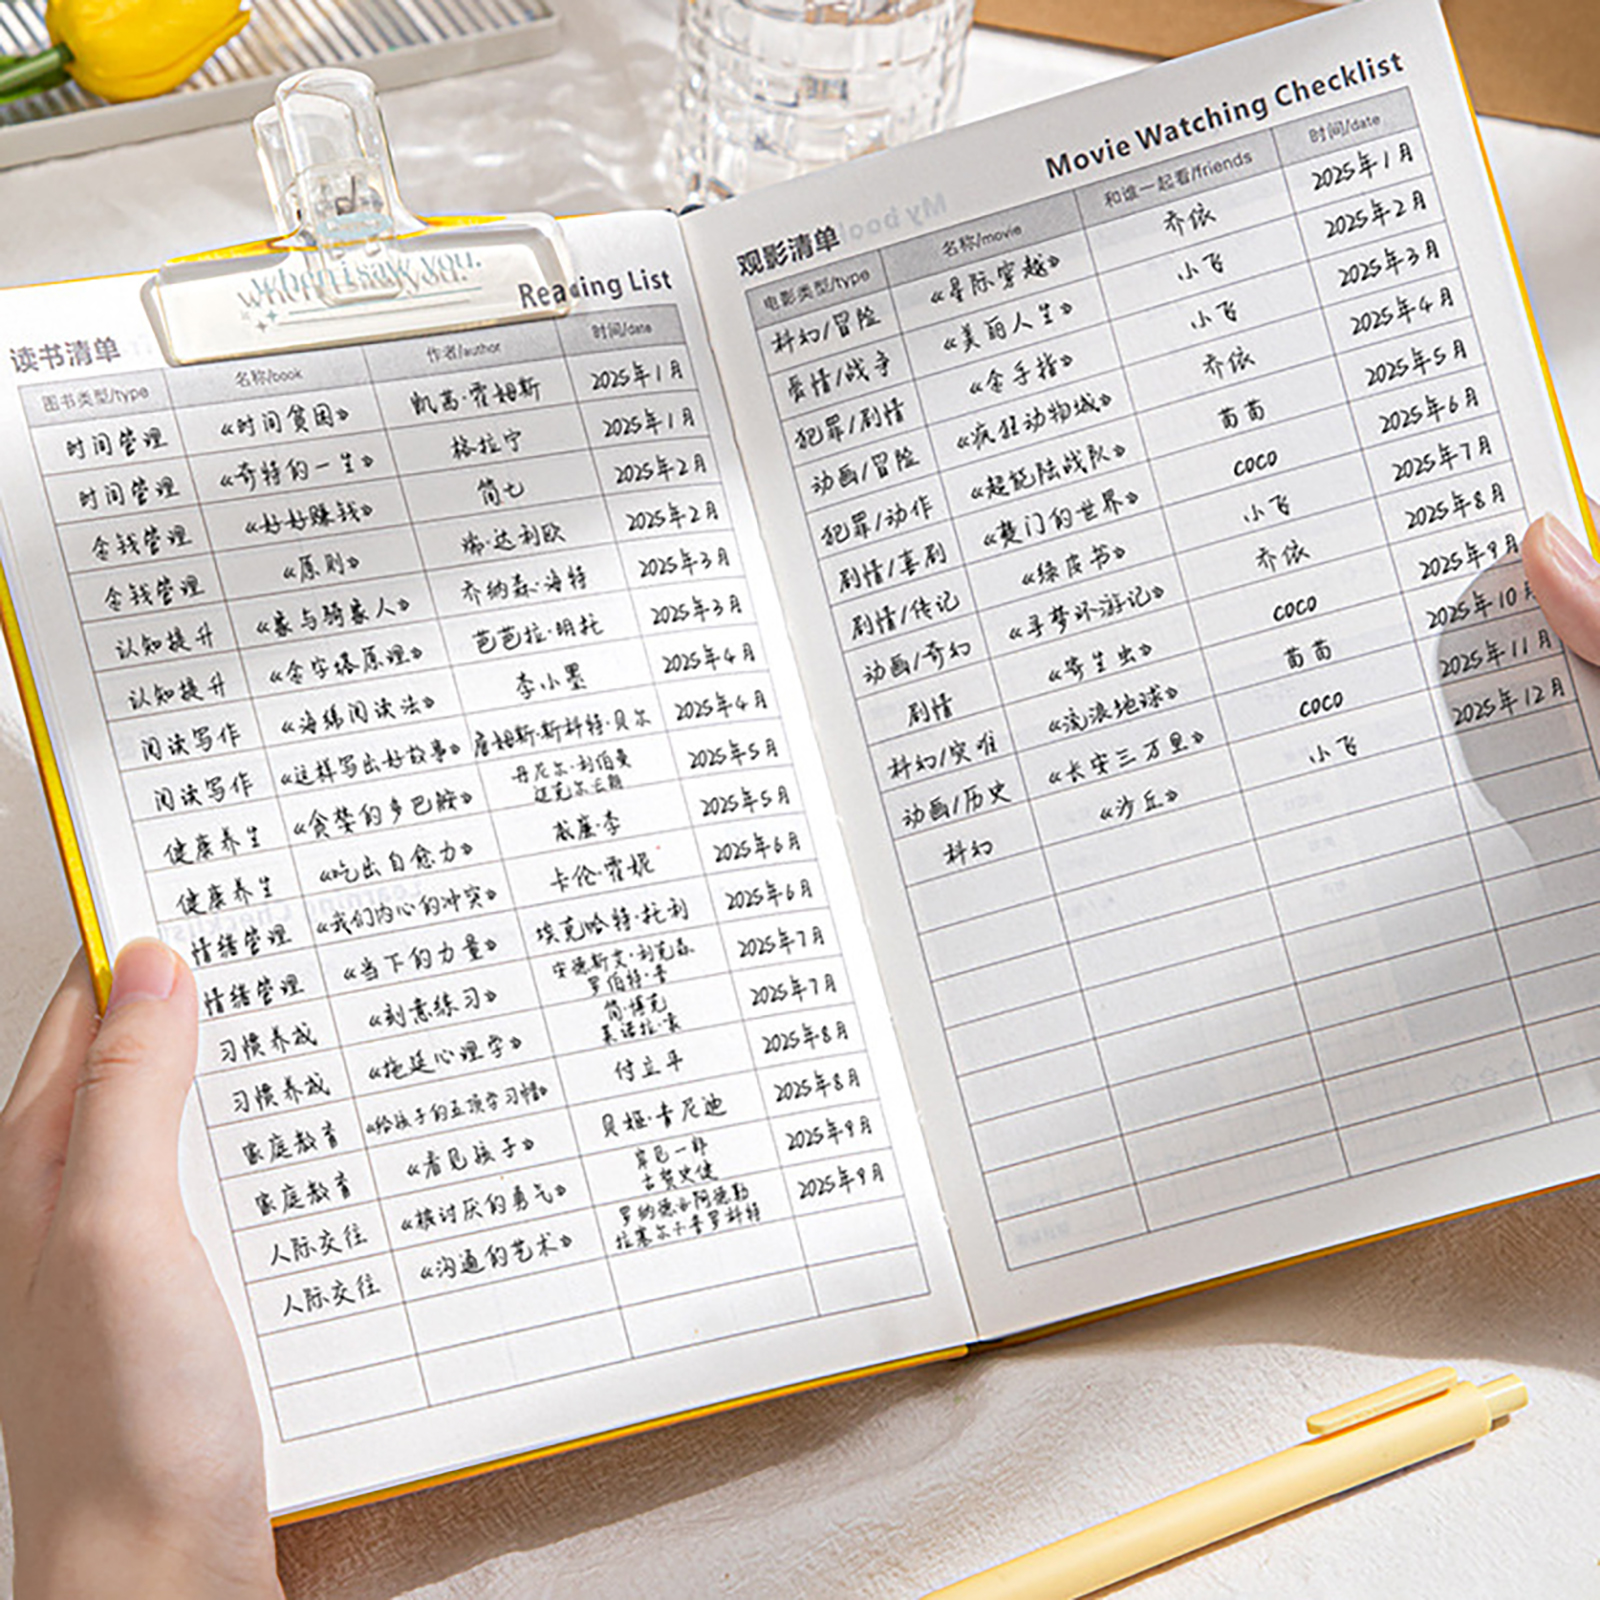 读书清单 Reading List
图书类型/type 名称/book 作者/author 时间/date
时间管理 《时间贫困》 凯茜·霍姆斯 2025年1月
时间管理 《奇特的一生》 格拉宁 2025年1月
金钱管理 《好好赚钱》 简七 2025年2月
金钱管理 《原则》 瑞·达利欧 2025年2月
认知提升 《象与骑象人》 乔纳森·海特 2025年3月
认知提升 《金字塔原理》 芭芭拉·明托 2025年3月
阅读写作 《海绵阅读法》 李小墨 2025年4月
阅读写作 《这样写出好故事》 詹姆斯·斯科特·贝尔 2025年4月
健康养生 《贪婪的多巴胺》 丹尼尔·利伯曼 2025年5月
健康养生 《吃出自愈力》 威廉·李 2025年5月
情绪管理 《我们内心的冲突》 卡伦·霍妮 2025年6月
情绪管理 《当下的力量》 埃克哈特·托利 2025年6月
习惯养成 《刻意练习》 2025年7月
习惯养成 《拖延心理学》 简·博克 莱诺拉·袁 2025年7月
家庭教育 《给孩子的五项学习帽》 付立平 2025年8月
家庭教育 《看见孩子》 贝姬·肯尼迪 2025年8月
人际交往 《被讨厌的勇气》 岸见一郎 古贺史健 2025年9月
人际交往 《沟通的艺术》 2025年9月
when i saw you.
观影清单 Movie Watching Checklist
电影类型/type 名称/movie 和谁一起看/friends 时间/date
科幻/冒险 《星际穿越》 乔依 2025年1月
爱情/战争 《美丽人生》 小飞 2025年2月
犯罪/剧情 《金手指》 小飞 2025年3月
动画/冒险 《疯狂动物城》 乔依 2025年4月
犯罪/动作 《超能陆战队》 苗苗 2025年5月
剧情/喜剧 《楚门的世界》 coco 2025年6月
剧情/传记 《绿皮书》 小飞 2025年7月
动画/奇幻 《寻梦环游记》 乔依 2025年8月
剧情 《寄生虫》 coco 2025年9月
科幻/灾难 《流浪地球》 苗苗 2025年10月
动画/历史 《长安三万里》 coco 2025年11月
科幻 《沙丘》 小飞 2025年12月